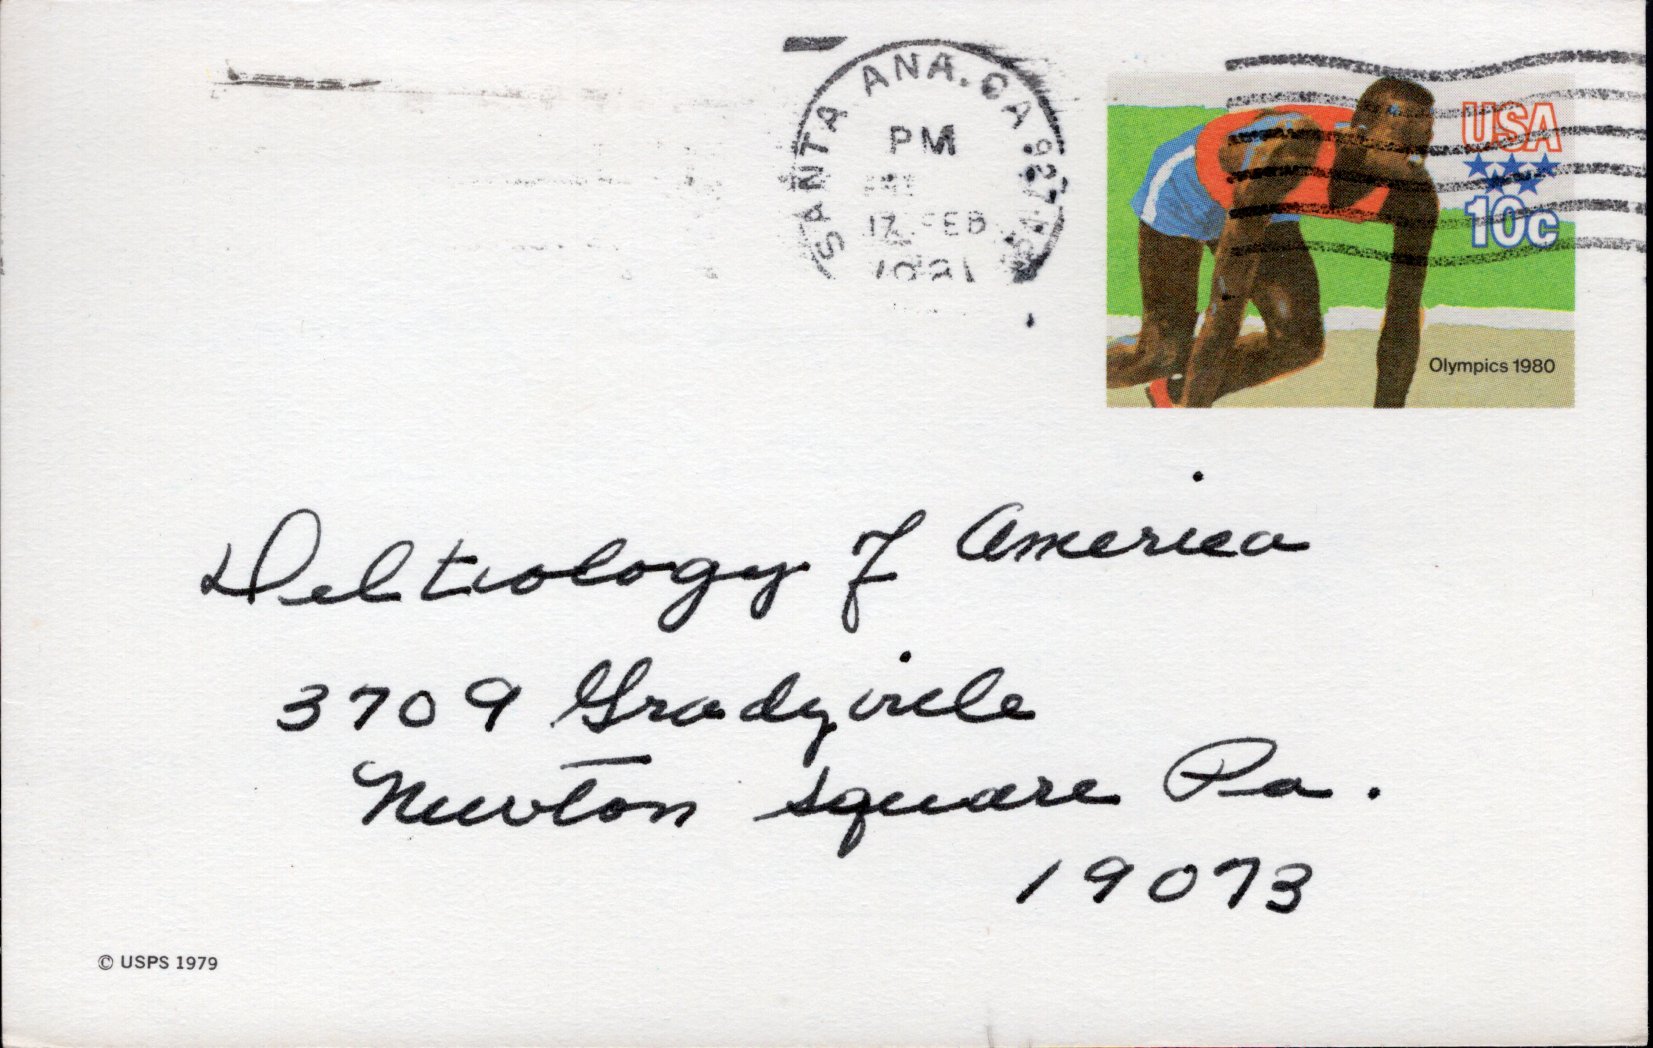 SANTA ANA, CA 927
PM
17 FEB
1981
USA
10c
Olympics 1980
Deltiology of America
3709 Gradyville
Newton Square Pa.
19073
© USPS 1979